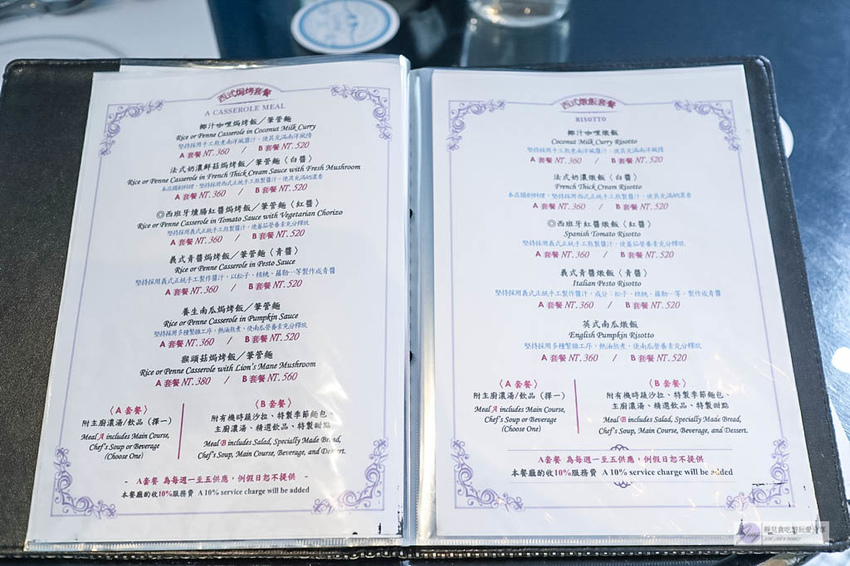 西式焗烤套餐
A CASSEROLE MEAL
椰汁咖哩焗烤飯／筆管麵
Rice or Penne Casserole in Coconut Milk Curry
堅持採用手工熬煮南洋風醬汁，使其充滿南洋風情
A 套餐 NT.360 / B 套餐 NT.520
法式奶濃鮮菇焗烤飯／筆管麵〈白醬〉
Rice or Penne Casserole in French Thick Cream Sauce with Fresh Mushroom
A 套餐 NT.360 / B 套餐 NT.520
◎西班牙燻腸紅醬焗烤飯／筆管麵〈紅醬〉
Rice or Penne Casserole in Tomato Sauce with Vegetarian Chorizo
堅持採用義式正統手工熬製醬汁，使蕃茄營養素充分釋放
A 套餐 NT.360 / B 套餐 NT.520
義式青醬焗烤飯／筆管麵〈青醬〉
Rice or Penne Casserole in Pesto Sauce
堅持採用義式正統手工製作醬汁，以松子、核桃、蘿勒…等製作成青醬
A 套餐 NT.360 / B 套餐 NT.520
養生南瓜焗烤飯／筆管麵
Rice or Penne Casserole in Pumpkin Sauce
堅持採用多種製麵工序，熱油熬煮，使南瓜營養素充分釋放
A 套餐 NT.360 / B 套餐 NT.520
猴頭菇焗烤飯／筆管麵
Rice or Penne Casserole with Lion's Mane Mushroom
A 套餐 NT.380 / B 套餐 NT.560
〈A 套餐〉
附主廚濃湯/飲品（擇一）
Meal A includes Main Course,
Chef's Soup or Beverage
(Choose One)
〈B 套餐〉
附有機時蔬沙拉、特製季節麵包、
主廚濃湯、精選飲品、特製甜點
Meal B includes Salad, Specially Made Bread,
Chef's Soup, Main Course, Beverage, and Dessert.
- A套餐 為每週一至五供應，例假日恕不提供 -
本餐廳酌收10%服務費 A 10% service charge will be added
西式燉飯套餐
RISOTTO
椰汁咖哩燉飯
Coconut Milk Curry Risotto
堅持採用手工熬煮南洋風醬汁，使其充滿南洋風情
A 套餐 NT.360 / B 套餐 NT.520
法式奶濃燉飯〈白醬〉
French Thick Cream Risotto
A 套餐 NT.360 / B 套餐 NT.520
◎西班牙紅醬燉飯〈紅醬〉
Spanish Tomato Risotto
堅持採用義式正統手工熬製醬汁，使蕃茄營養素充分釋放
A 套餐 NT.360 / B 套餐 NT.520
義式青醬燉飯〈青醬〉
Italian Pesto Risotto
堅持採用義式正統手工製作醬汁，成分：松子、核桃、蘿勒…等，製作成青醬
A 套餐 NT.360 / B 套餐 NT.520
英式南瓜燉飯
English Pumpkin Risotto
堅持採用多種製麵工序，熱油熬煮，使南瓜營養素充分釋放
A 套餐 NT.360 / B 套餐 NT.520
〈A 套餐〉
附主廚濃湯/飲品（擇一）
Meal A includes Main Course,
Chef's Soup or Beverage
(Choose One)
〈B 套餐〉
附有機時蔬沙拉、特製季節麵包、
主廚濃湯、精選飲品、特製甜點
Meal B includes Salad, Specially Made Bread,
Chef's Soup, Main Course, Beverage, and Dessert.
A套餐 為每週一至五供應，例假日恕不提供
本餐廳酌收10%服務費 A 10% service charge will be added